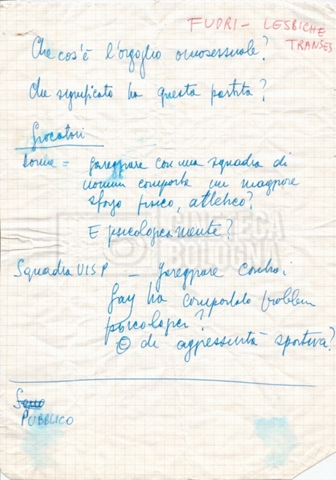 FUORI - LESBICHE
TRANSES
Che cos'è l'orgoglio omosessuale?
Che significato ha questa partita?
Giocatori
donna = gareggiare con una squadra di
uomini comporta un maggiore
sforzo fisico, atletico?
E psicologicamente?
Squadra UISP - gareggiare contro i
gay ha comportato problem
psicologici?
O di aggressività sportiva?
PUBBLICO